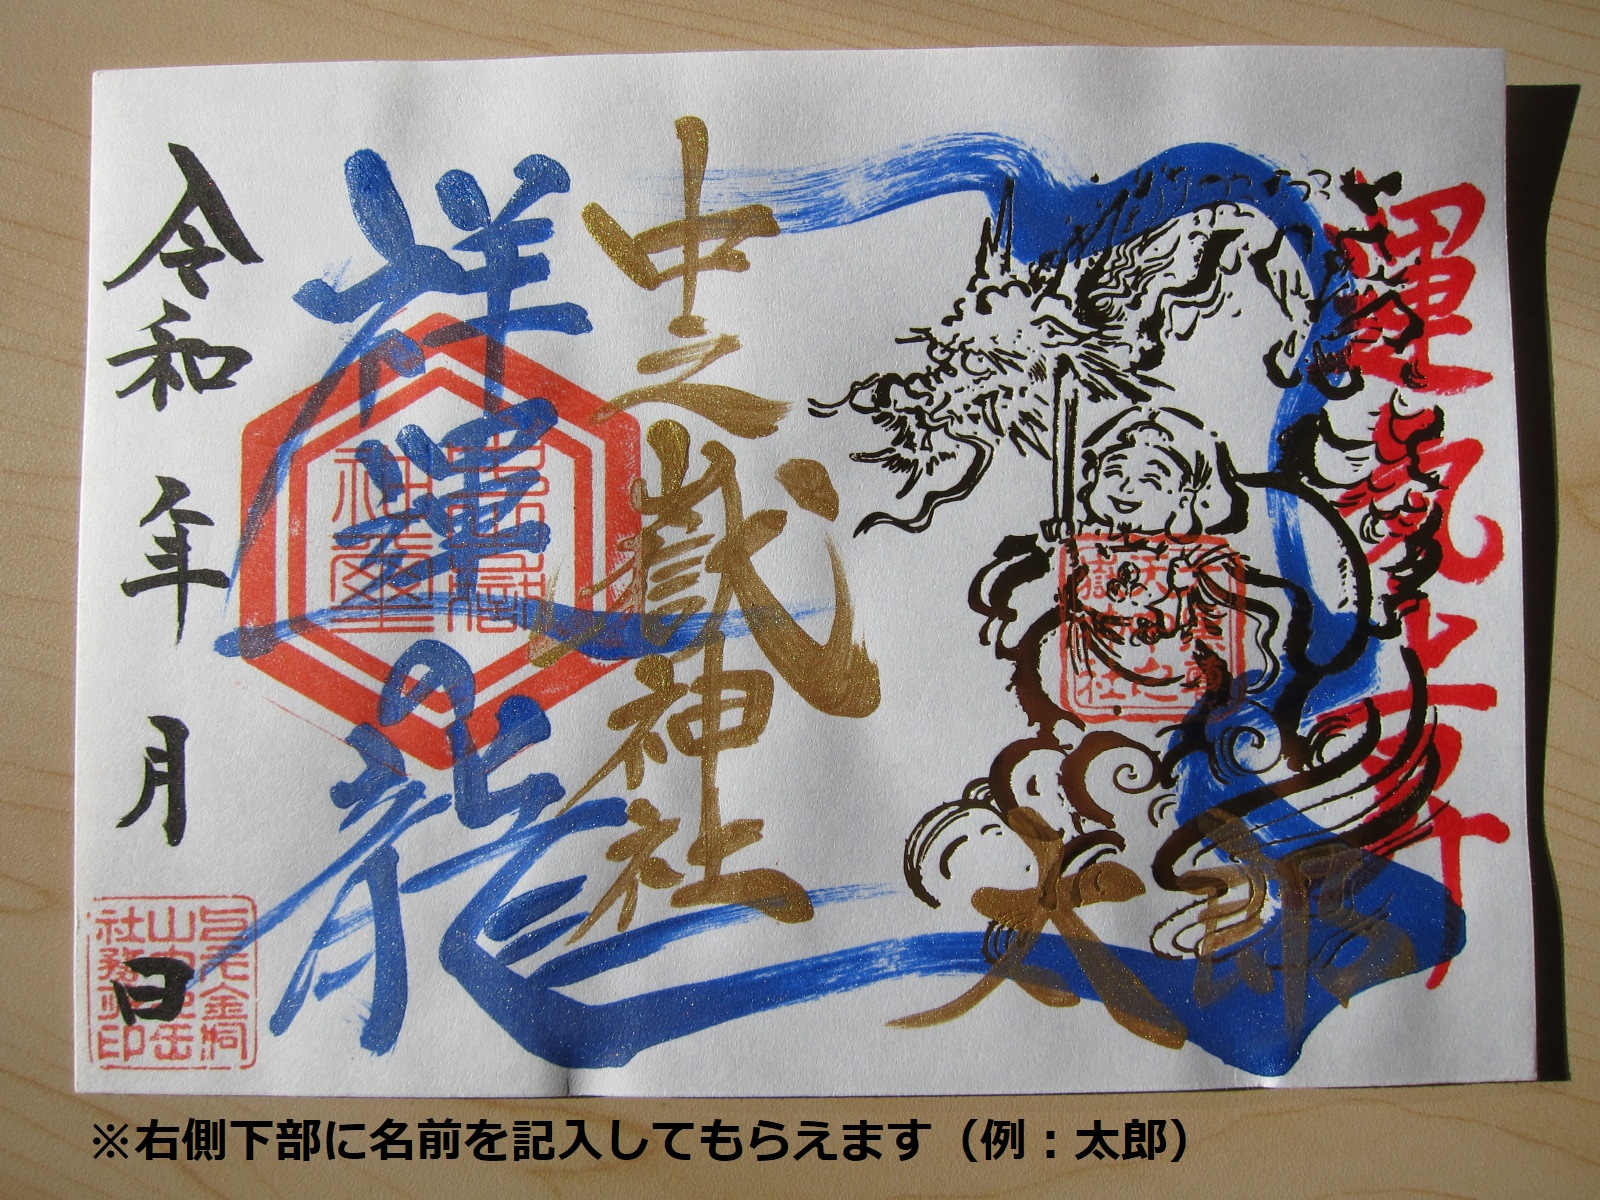 運気上昇
太郎
中之嶽神社
祥運の龍
令和 年 月 日
上毛金洞
山中之岳
社務所印
※右側下部に名前を記入してもらえます（例：太郎）